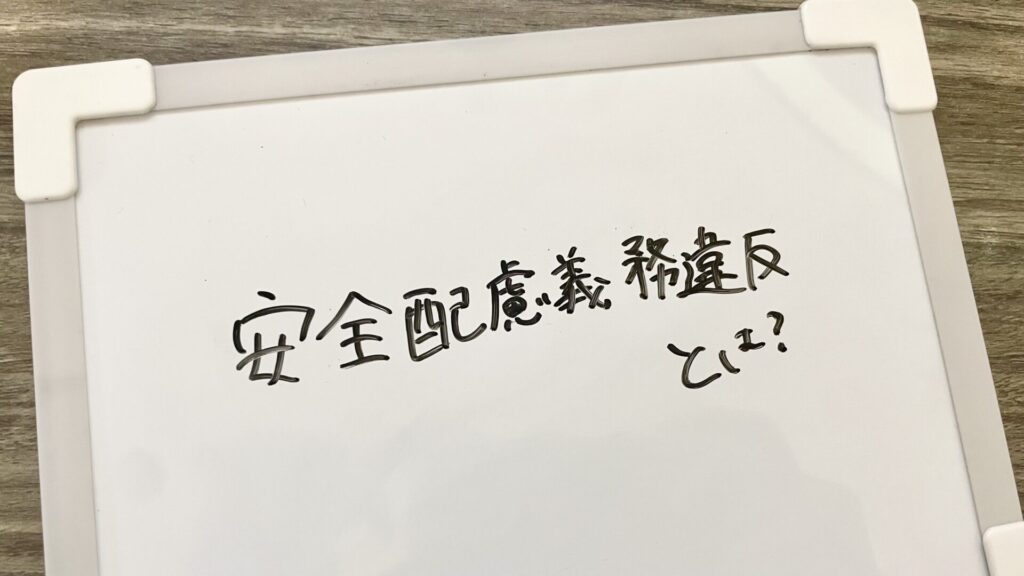 安全配慮義務違反
とは?